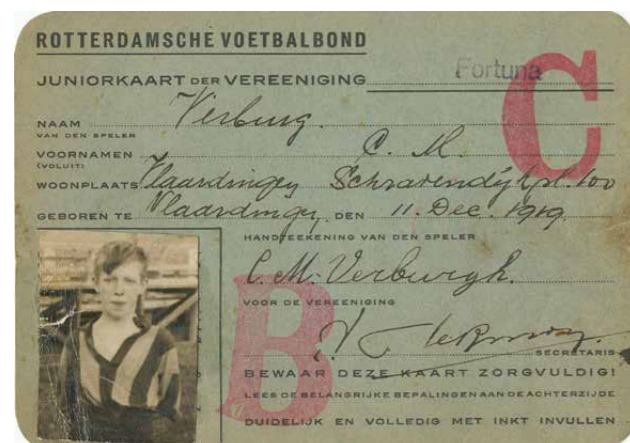 ROTTERDAMSCHE VOETBALBOND
JUNIORKAART DER VEREENIGING Fortuna
C
NAAM Verburg.
VAN DEN SPELER
VOORNAMEN C. M.
(VOLUIT)
WOONPLAATS Vlaardingen Schravendijkpl. 100
GEBOREN TE Vlaardingen, DEN 11. Dec. 1919.
HANDTEEKENING VAN DEN SPELER
C. M. Verburgh.
VOOR DE VEREENIGING
SECRETARIS
B
BEWAAR DEZE KAART ZORGVULDIG!
LEES DE BELANGRIJKE BEPALINGEN AAN DE ACHTERZIJDE
DUIDELIJK EN VOLLEDIG MET INKT INVULLEN